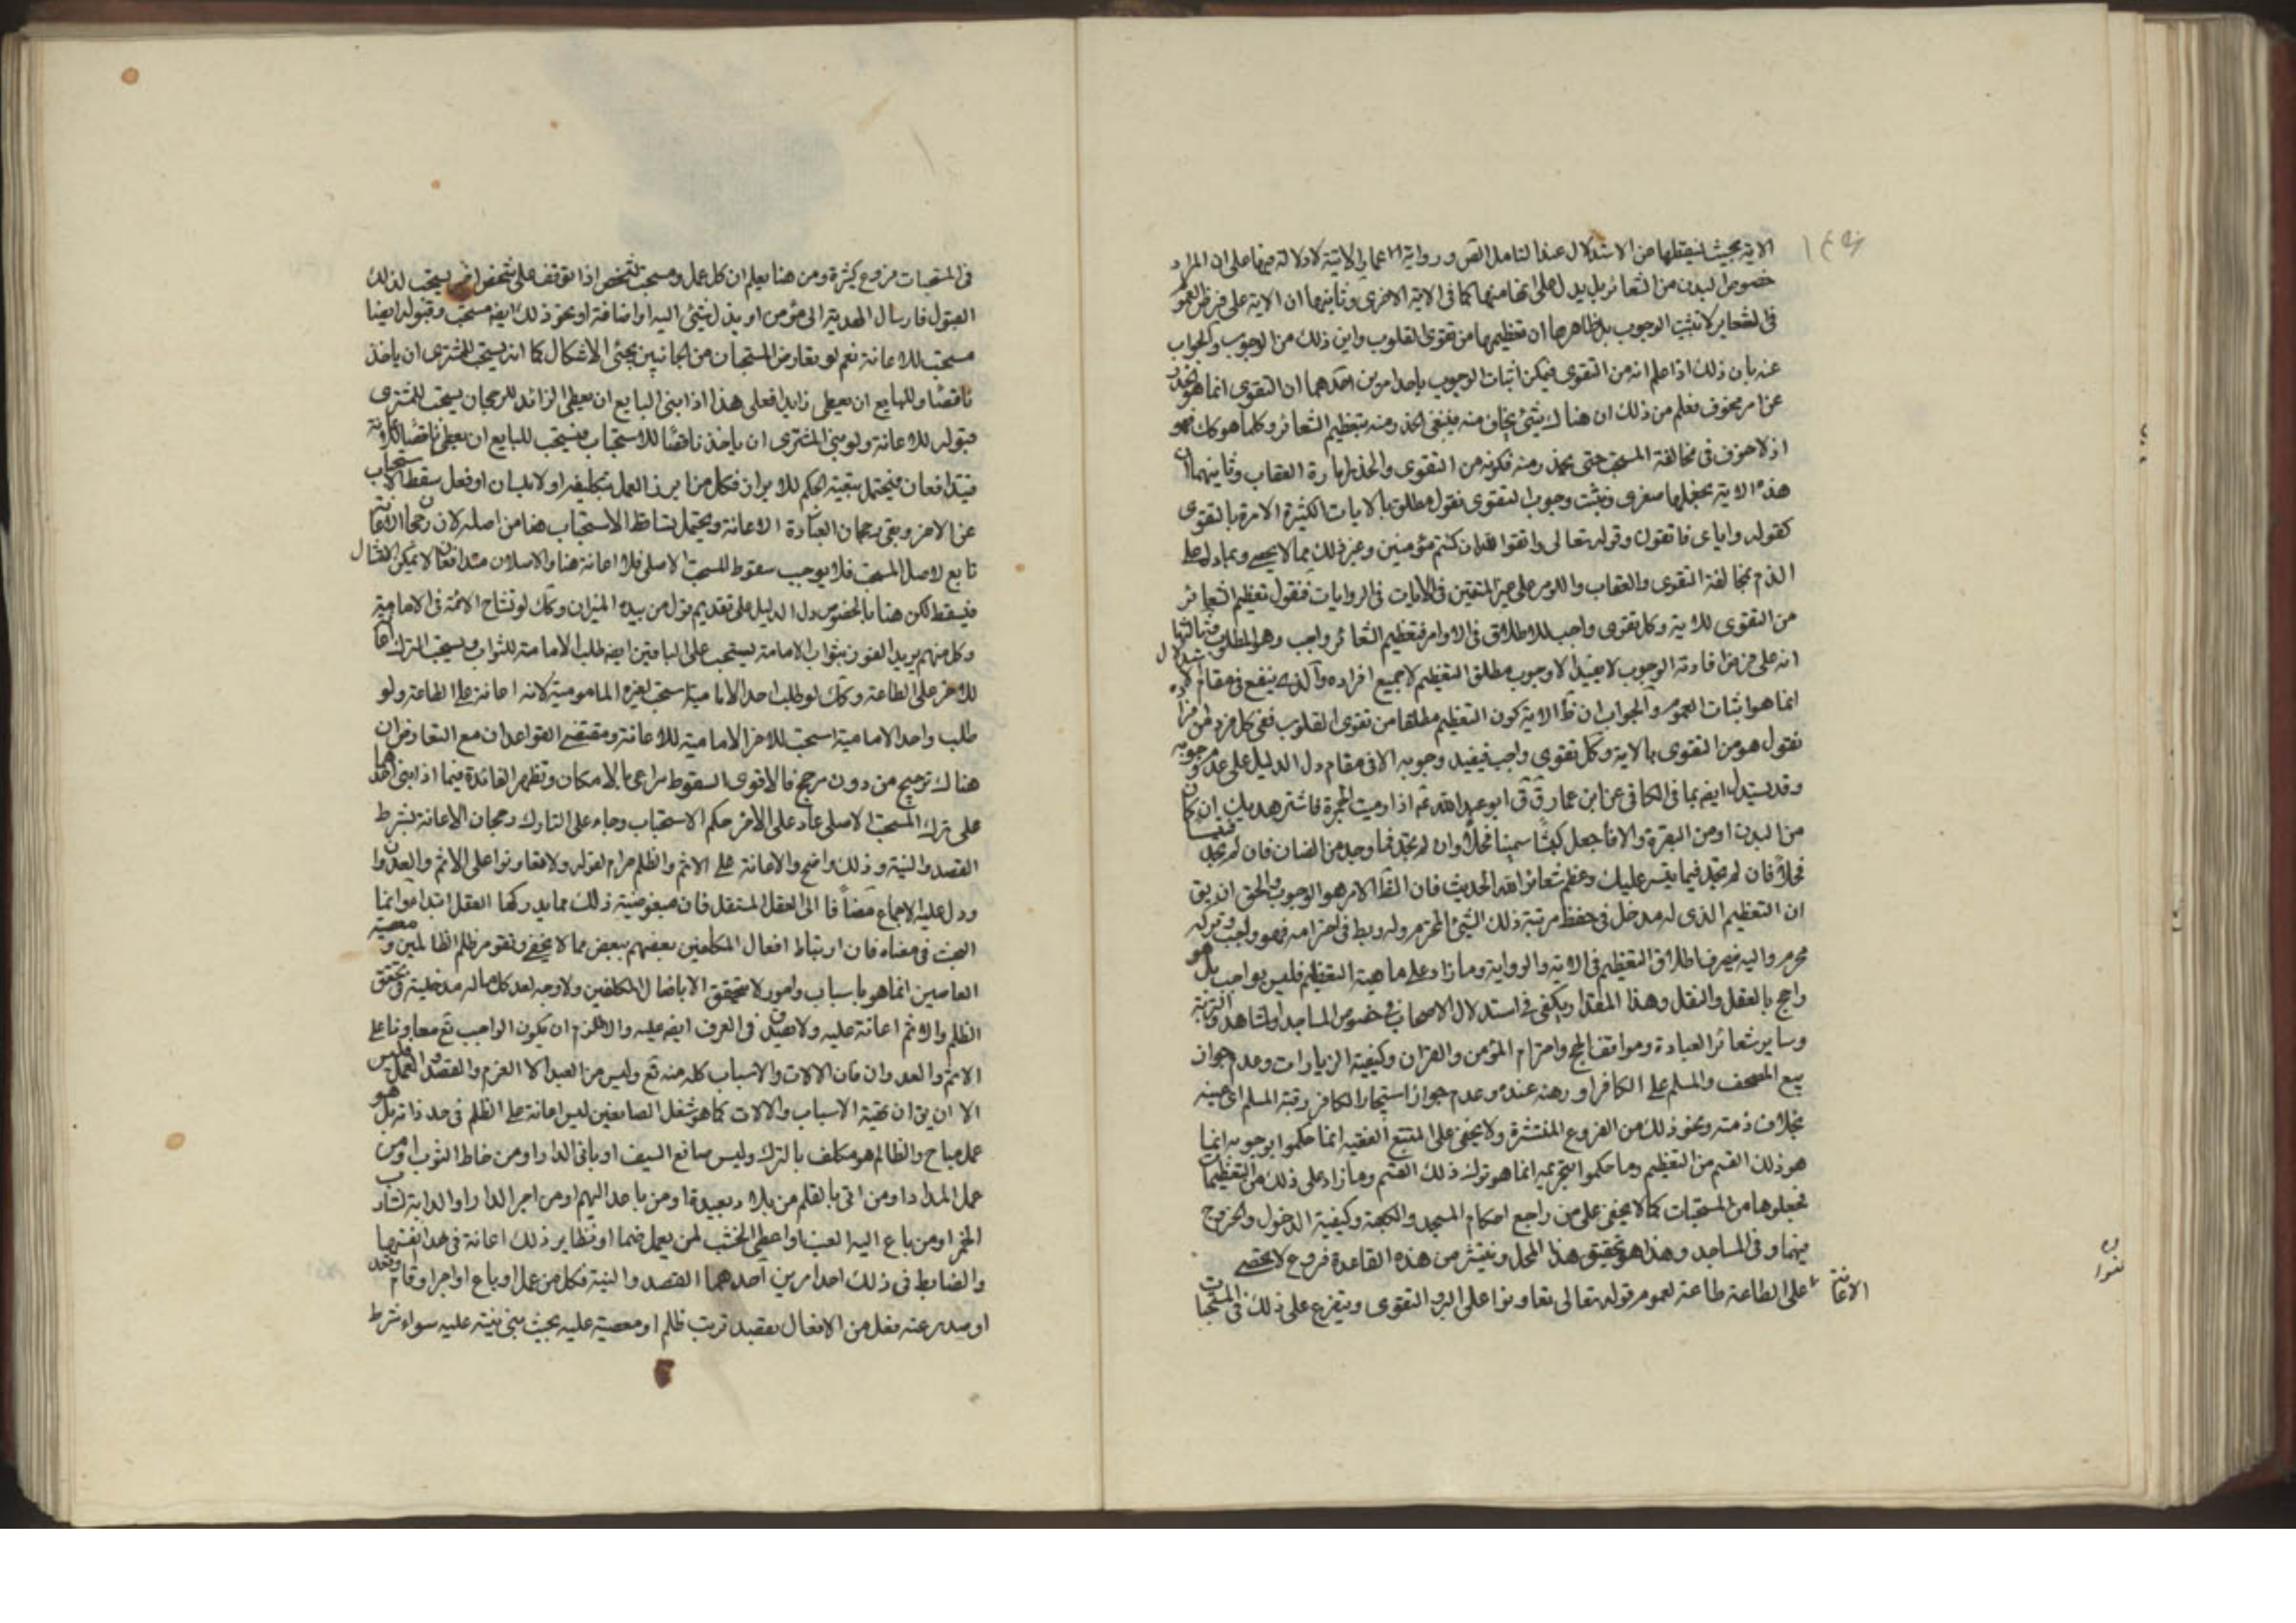 الاية بحيث يسقطها عن الاستدلال عند التامل التص ورواية الاتية لا دلالة فيها على ان المراد
خصوص البدن من الشعائر بل يدل على انها منها كما في الاية الاخرى وثانيهما ان الاية على فرض العموم
في الشعاير لا تثبت الوجوب بل ظاهرها ان تعظيمها من تقوى القلوب واين ذلك من الوجوب والجواب
عنه بان ذلك اذا علم انه من التقوى فيمكن اثبات الوجوب باحد امرين احدهما ان التقوى انما هو التحذر
عن امر مخوف فعلم من ذلك ان هنا شيئ يخاف منه فينبغي الحذر منه بتعظيم الشعائر وكلما هو كك فهو
اذ لا خوف في مخالفة المستحب حتى يحذر منه فكونه من التقوى والحذر امارة العقاب وثانيهما ان
هذه الاية نجعلها صغرى ونثبت وجوب التقوى بقول مطلق بالايات الكثيرة الامرة بالتقوى
كقوله واياى فاتقون وقوله تعالى واتقوا الله ان كنتم مؤمنين وغير ذلك مما لا يحصى وبما دل على
الذم بمخالفة التقوى والعقاب واللوم على غير المتقين في الايات في الروايات فنقول تعظيم الشعائر
من التقوى للاية وكل تقوى واجب للاطلاق في الاوامر فتعظيم الشعائر واجب وهو المطلوب ثالثها
انه على فرض افادته الوجوب لا يفيد الا وجوب مطلق التعظيم لا جميع افراده والذى ينفع في مقام الاستدلال
انما هو اثبات العموم والجواب ان ظ الاية كون التعظيم مطلقا من تقوى القلوب ففي كل فرد فرض
نقول هو من التقوى بالاية وكل تقوى واجب فيفيد وجوبه الا في مقام دل الدليل على عدم وجوبه
وقد يستدل ايضا بما في الكافي عن ابن عمار ق ق ابو عبد الله ع اذا رميت الجمرة فاشتر هديك ان كان
من البدن او من البقرة والا فاجعل كبشا سمينا فحلا وان لم تجد فما وجد من الضان فان لم تجد
فحلا فان لم تجد فيما تيسر عليك وعظم شعائر الله الحديث فان الظ الامر هو الوجوب والحق ان يق
ان التعظيم الذى له مدخل في حفظ مرتبة ذلك الشيئ المحترم وله ربط في احترامه فهو واجب وتركه
محرم واليه ينصرف اطلاق التعظيم في الاية والرواية وما زاد على ماهية التعظيم فليس بواجب بل هو
راجح بالعقل والنقل وهذا المقدار يكفي في استدلال الاصحاب في خصوص المساجد والمشاهد والتربة
وساير شعائر العبادة ومواقف الحج واحترام المؤمن والقران وكيفية الزيارات وعدم جواز
بيع المصحف والمسلم على الكافر او رهنه عنده وعدم جواز استيجار الكافر رقبة المسلم اى عينه
بخلاف ذمته ونحو ذلك من الفروع المنتشرة ولا يخفى على المتتبع الفقيه انما حكموا بوجوبه انما
هو ذلك القسم من التعظيم وما حكموا بتحريمه انما هو ترك ذلك القسم وما زاد على ذلك من التعظيمات
فجعلوها من المستحبات كما لا يخفى على من راجع احكام المسجد والكعبة وكيفية الدخول والخروج
فيهما وفي المساجد وهذا هو تحقيق هذا المحل وينتشر من هذه القاعدة فروع لا تحصى
الاعانة على الطاعة طاعة لعموم قوله تعالى تعاونوا على البر والتقوى ويتفرع على ذلك في المستحبات
في المستحبات فروع كثيرة ومن هنا يعلم ان كل عمل ومستحب لشخص اذا توقف على شخص اخر يستحب لذلك
القبول فارسال الهدية الى مؤمن او بذل شيئ اليه او اضافة او نحو ذلك ايضا مستحب وقبوله ايضا
مستحب للاعانة نعم لو تعارض المستحبان من الجانبين يجئ الاشكال كما انه يستحب للمشترى ان ياخذ
ناقصا وللبايع ان يعطى زايدا فعلى هذا اذا بنى البايع ان يعطى الزائد للرجحان يستحب للمشترى
قبوله للاعانة ولو بنى المشترى ان ياخذ ناقصا للاستحباب فيستحب للبايع ان يعطى ناقصا
فيتدافعان فيحتمل تبعية الحكم للابراز فكل من ابرز العمل بتكليفه اولا بلسان او فعل سقط الاستحباب
عن الاخر وبقى رجحان الاعانة ويحتمل تساقط الاستحباب هنا من اصله لان رجحان الاعانة
تابع لاصل المستحب فلا يوجب سقوط المستحب الاصلى فلا اعانة هنا والاصلان متدافعان لا يمكن امتثال
فيسقط لكن هنا بالخصوص دل الدليل على تقديم قول من بيده الميزان وكك لو تشاح الائمة في الامامية
وكل منهم يريد الفوز بثواب الامامة يستحب على الباقين ايضا طلب الامامة للثواب ويستحب الترك
للاخر على الطاعة وكك لو طلب احد الامامية استحب لغيره المامومية لانه اعانة على الطاعة ولو
طلب واحد الامامية استحب للاخر الامامية للاعانة ومقتضى القواعد ان مع التعارض ان
هناك ترجيح من دون مرجح فالاقوى السقوط براعى بالامكان وتظهر الفائدة فيما اذا بنى احدهما
على ترك المستحب الاصلى عاد على الاخر حكم الاستحباب وجاء على التارك رجحان الاعانة بشرط
القصد والنية وذلك واضح والاعانة على الاثم والظلم حرام لقوله ولا تعاونوا على الاثم والعدوان
ودل عليه الاجماع مضافا الى العقل المستقل فان مبغوضية ذلك مما يدركها العقل ابتداء وانما
البحث في معناه فان ارتباط افعال المكلفين بعضهم ببعض مما لا يخفى وتقوم ظلم الظالمين و معصية
العاصين انما هو باسباب وامور لا تتحقق الا بافعال المكلفين ولا وجه لعد كل ماله مدخلية في تحقق
الظلم والاثم اعانة عليه ولا يصدق في العرف ايضا عليه والا للزم ان يكون الواجب تع معاونا على
الاثم والعدوان فان الالات والاسباب كله منه تع وليس من العبد الا العزم والقصد والعمل فليس
الا ان يق ان تهية الاسباب والالات كما هو شغل الصانعين ليس اعانة على الظلم في حد ذاته بل هو
عمل مباح والظالم هو مكلف بالترك وليس صانع السيف او بانى الدار او من خاط الثوب او من
عمل المداد او من اتى بالقلم من بلاد بعيدة او من باعه اليهم او من اجر الدار او الدابة لشارب
الخمر او من باع اليه العنب او اعطى الخشب لمن يعمل صنما او نظاير ذلك اعانة في حد انفسها
والضابط في ذلك احد امرين احدهما القصد والنية فكل من عمل او باع او اجر او قام وقعد
او صدر عنه فعل من الافعال بقصد ترتب ظلم او معصية عليه بحيث بنى نيته عليه سواء شرط